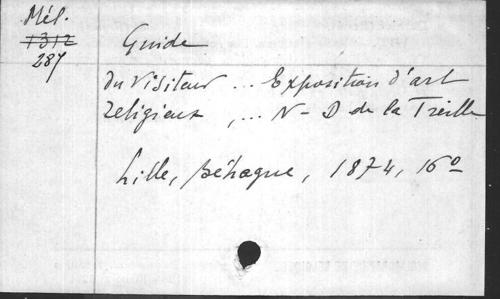 Mél.
1312
287
Guide
du Visiteur ... Exposition d'art
religieux, ... N-D de la Treille
Lille, Béhague, 1874, 16º